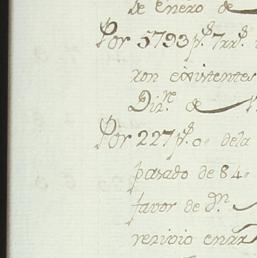 de Enero de
Por 5793 p.s 7 rr.s
ron existentes
Dir.n de
Por 227 p.s 0 dela
pasado de 84
favor de D.n
rezivio en